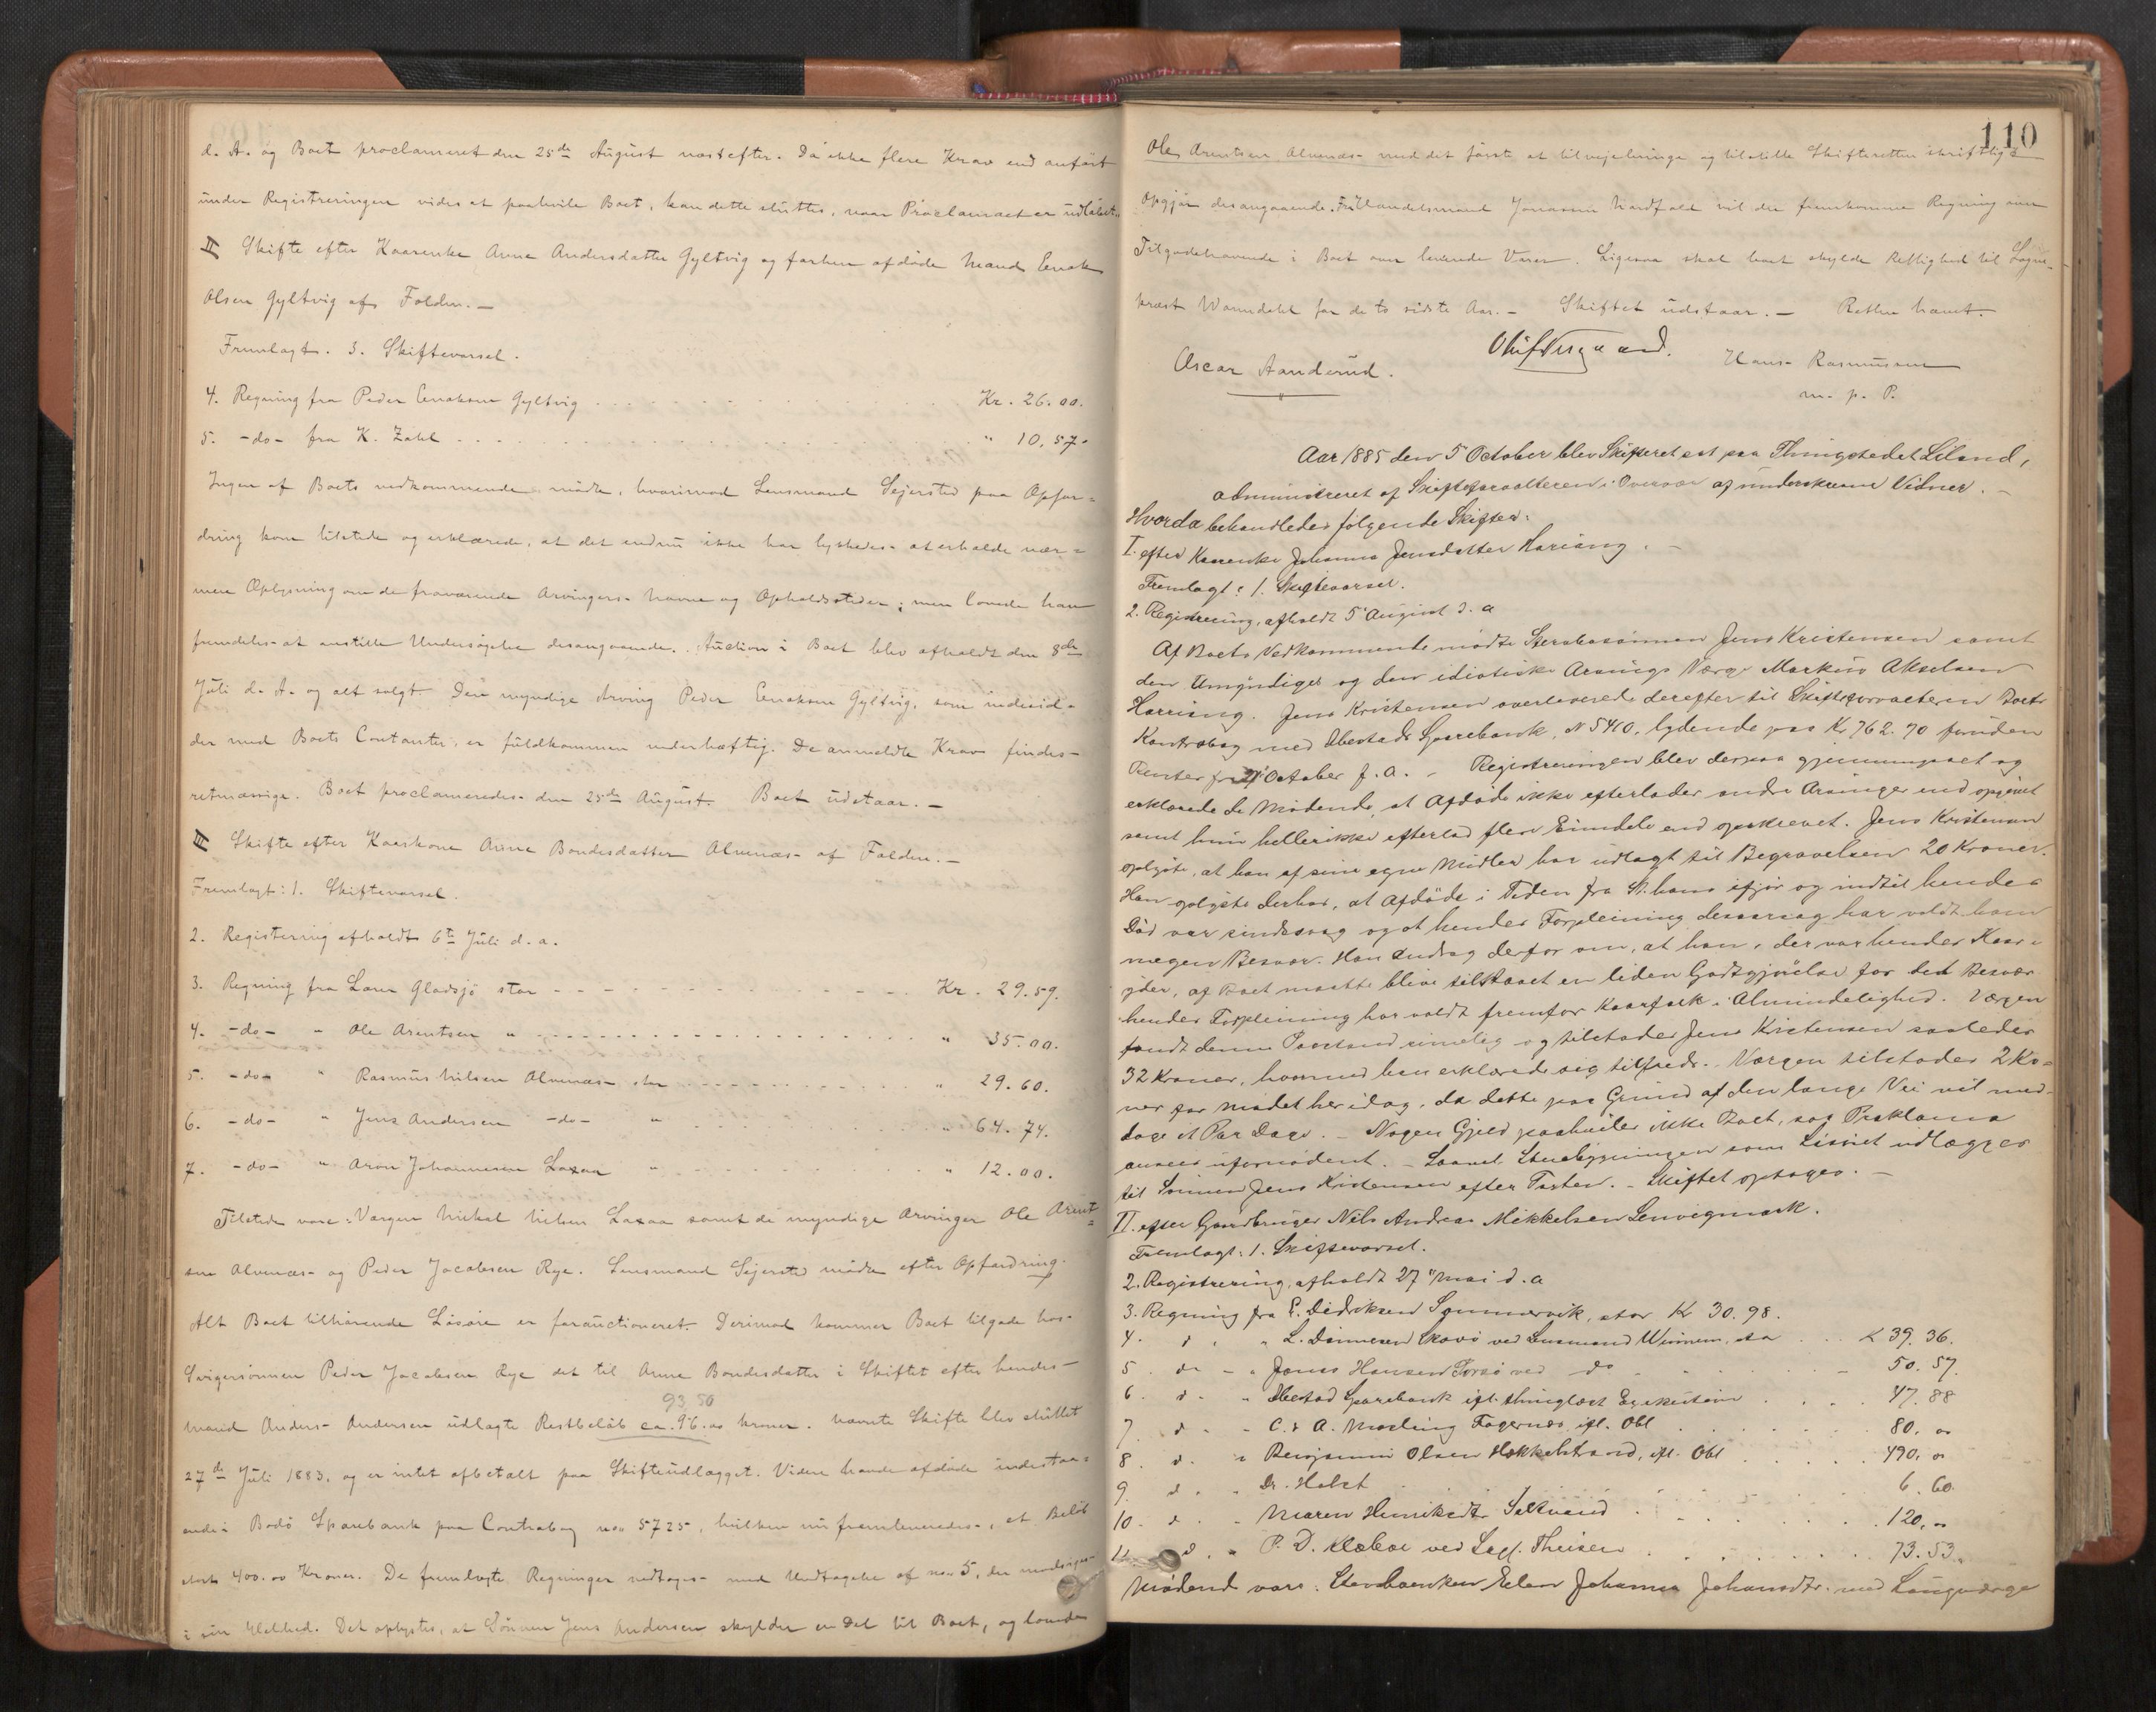 d. A. og Boet proclameret den 25de August næstefter. Da ikke flere Krav end anført
under Registreringen vides at paahvile Boet, kan dette sluttes, naar Proclamaet er udløbet.
II Skifte efter Kaarenke Anne Andersdatter Gyltvig og forhen afdøde Mand Enok
Olsen Gyltvig af Folden. —
Fremlagt. 3. Skiftevarsel.
4. Regning fra Peder Enoksen Gyltvig Kr. 26.00.
5. -do- fra K. Zahl " 10.57.
Ingen af Boets vedkommende mødte, hvorimod Lensmand Sejersted paa Opfor=
dring kom tilstede og erklærede, at det endnu ikke har lykkedes at erholde nær=
mere Oplysning om de fraværende Arvingers Navne og Opholdssteder; men lovede han
fremdeles at anstille Undersøgelse desangaaende. Auction i Boet blev afholdt den 8de
Juli d. A. og alt solgt. Den myndige Arving Peder Enoksen Gyltvig, som indesid=
der med Boets Contanter, er fuldkommen vederhæftig. De anmeldte Krav findes
retmæssige. Boet proclameredes den 25de August. Boet udstaar. —
III Skifte efter Kaarkone Anne Bondesdatter Alvenæs af Folden. —
Fremlagt: 1. Skiftevarsel.
2. Registering afholdt 6te Juli d. a.
3. Regning fra Lars Gladsjø stor Kr. 29.59.
4. -do- " Ole Arentsen " " 35.00.
5. -do- " Rasmus Nilsen Alvenæs stor " 29.60.
6. -do- " Jens Andersen -do- " " 64.74.
7. -do- " Aron Johannesen Laxaa " " 12.00.
Tilstede vare:Værgen Mikal Nilsen Laxaa samt de myndige Arvinger Ole Arent=
sen Alvenæs og Peder Jacobsen Rye. Lensmand Sejersted mødte efter Opfordring.
Alt Boet tilhørende Løsøre er forauctioneret. Derimod kommer Boet tilgode hos
Svigersønnen Peder Jacobsen Rye det til Anne Bondesdatter i Skiftet efter hendes
93,50
Mand Anders Andersen udlagte Restbeløb ca. 96.00 kroner. Nævnte Skifte blev sluttet
27de Juli 1883, og er intet afbetalt paa Skifteudlægget. Videre havde afdøde indestaa=
ende i Bodø Sparebank paa Contrabog no. 5725, hvilken nu fremleveredes, et Beløb
stort 400.00 Kroner. De fremlagte Regninger vedtoges med Undtagelse af no. 5, der modsiges
i sin Helhed. Det oplystes, at Sønnen Jens Andersen skylder en Del til Boet, og lovede
110
Ole Arentsen Alvenæs med det første at tilvejebringe og tilstille Skifteretten skriftligt
Opgjør desangaaende. Handelsmand Jonassen Nordfold vil der fremkomme Regning om
Tilgodehavende i Boet om leverede Varer. Ligesaa skal boet skylde Rettighed til Sogne=
præst Warndahl for de to sidste Aar. — Skiftet udstaar. — Retten hævet.
Oscar Aanderud. Hans Rasmussen
m. p. P.
Aar 1885 den 5 October blev Skifteret sat paa Thingstedet Liland,
administreret af Skifteforvalteren i Overvær af underskrevne Vidner. —
Hvorda behandledes følgende Skifter:
I. efter Kaarenke Johanna Jensdatter Hariang. —
Fremlagt: 1. Skiftevarsel.
2. Registrering, afholdt 5 August d. a
Af Boets Vedkommende mødte Stervbosønnen Jens Kristensen samt
den Umyndiges og den idiotiske Arvings Værge Markus Akselsen
Harriang. Jens Kristensen overleverede derefter til Skifteforvalteren Boets
Kontrabog med Ibestads Sparebank, N 5410, lydende paa Kr 762.70 foruden
Renter fra October f. a. — Registreringen blev derpaa gjennemgaaet og
erklærede de Mødende, at Afdøde ikke efterlader andre Arvinger end opgivet
samt hun heller ikke efterlod flere Eiendele end opskrevet. Jens Kristensen
oplyste, at han af sine egne Midler har udlagt til Begravelsen 20 Kroner.
Han oplyste derhos, at Afdøde i Tiden fra St. hans ifjor og indtil hendes
Død var sindssvag og at hendes Forpleining desaarsag har voldt ham
megen Besvær. Han androg derfor om, at han, der var hendes Kaar=
yder, af Boet maatte blive tilstaaet en liden Godtgjørelse for det Besvær
hendes Forpleining har voldt fremfor Kaarfolk i Almindelighed. Værgen
fandt denne Paastand rimelig og tilstodes Jens Kristensen saaledes
32 Kroner, hvormed han erklærede sig tilfreds. Værgen tilstodes 2 Kro=
ner for Mødet her idag, da dette paa Grund af den lange Vei vil med=
tage et Par Dage. — Nogen Gjeld paahviler ikke Boet, saa Proklama
ansees ufornødent. — Saavel som Løsøret udlægges
til Sønnen Jens Kristensen efter Taxten. — Skiftet optages. —
II. efter Gaardbruger Nils Andreas Mikkelsen Lenvigmark.
Fremlagt: 1. Skiftevarsel.
2. Registrering, afholdt 27 Mai d. a
3. Regning fra E. Didriksen Sommervik, stor Kr 30.98.
4. d " " L. Dinnesen Skovø ved Lensmand Winnem, sta K 39.36.
5. do - " Jonas Hansen ved do 50.57.
6. d " Ibestad Sparebank ifl. thinglæst Exekution 47.88
7. d - - C. & A. Fagernes, ifl. Obl 80.00
8. d. " Benjamin Olsen Hokkelstrand, ifl. Obl 490.00
9. d " Dr. Holst 6.60.
10. d. - Maren Henriksdtr 120,00
11. d. " P. D. Klæboe ved Sagf. Theisen 73.53.
Mødende vare: Stervboenken Ellen Johanna Johansdtr. med Laugværge